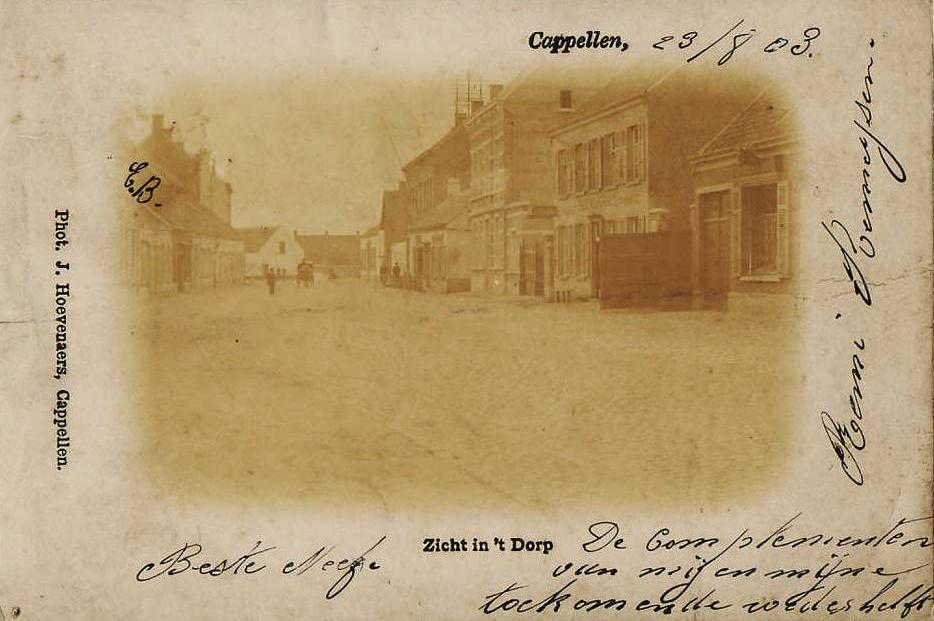 Cappellen, 23/8 03.
C.B.
Phot. J. Hoevenaers, Cappellen.
Remi
Zicht in 't Dorp
Beste Neef.
De Complementen
van mij en mijne
toekomende wederhelft